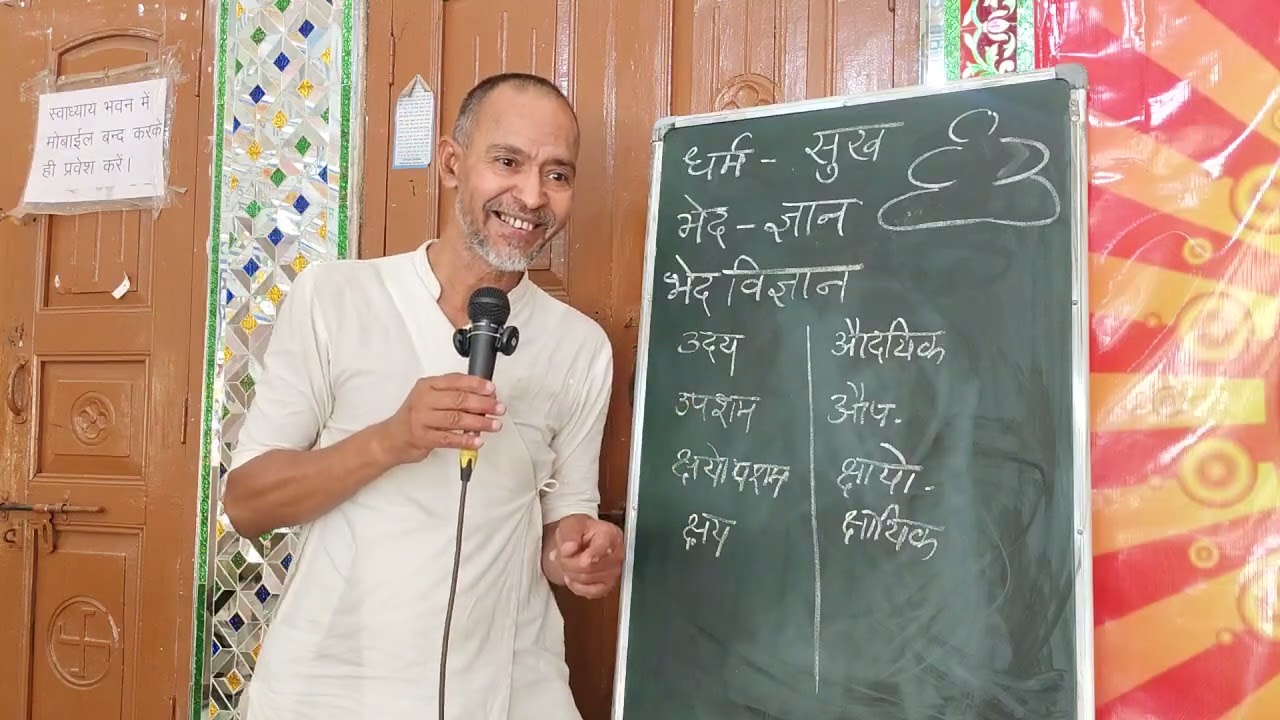 स्वाध्याय भवन में
मोबाईल बन्द करके
ही प्रवेश करें।
धर्म - सुख
भेद - ज्ञान
भेद विज्ञान
उदय औदयिक
उपशम औप.
क्षयोपशम क्षायो.
क्षय क्षायिक